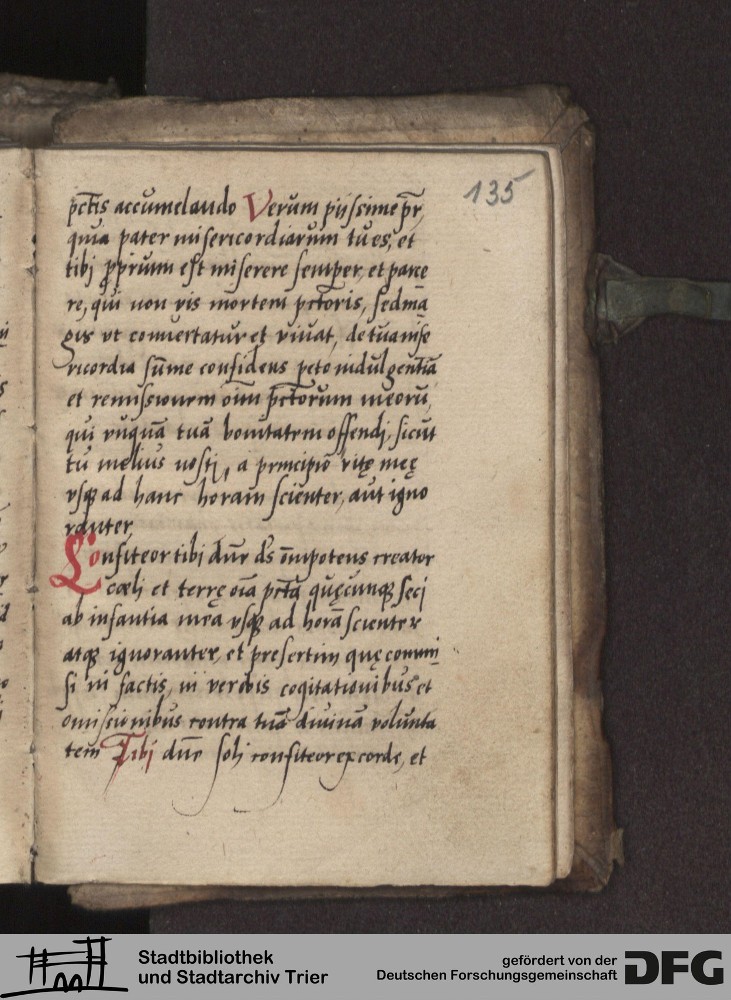 135
pctīs accumelando Verum pijssime pr̄,
quia pater misericordiarum tu es, et
tibi pp̄rium est miserere semper, et parce
re, qui non vis mortem pctoris, sed ma
gis vt conuertatur et viuat, de tua mise
ricordia sūme confidens peto indulgentiā
et remissionem oīm pctorum meorū,
qui vnquā tuā bonitatem offendi, sicut
tu melius nosti, a principio vitę meę
vsq; ad hanc horam scienter, aut igno
ranter
Confiteor tibi dn̄e ds̄ om̄ipotens creator
cœli et terrę oīa pctā quęcunq; feci
ab infantia mea vsq; ad horā scienter
atq; ignoranter, et presertim quę commi
si in factis, in verbis cogitationibus et
omissionibus contra tuā diuinā volunta
tem Tibi dn̄e soli confiteor ex corde, et
Stadtbibliothek
und Stadtarchiv Trier
gefördert von der
Deutschen Forschungsgemeinschaft
DFG